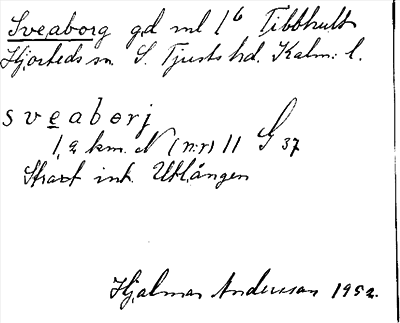 Sveaborg gd ml 1⁶ Tibbhult
Hjorteds sn. S. Tjusts hd. Kalm: l.
sveaborj
1,2 km. N (n:r) 11 G 37
Strax inh. Utlången
Hjalmar Andersson 1952.